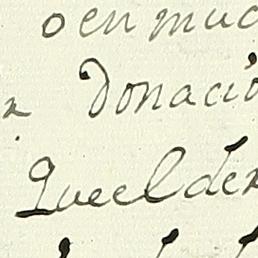 o en muc
Donació
Que el der